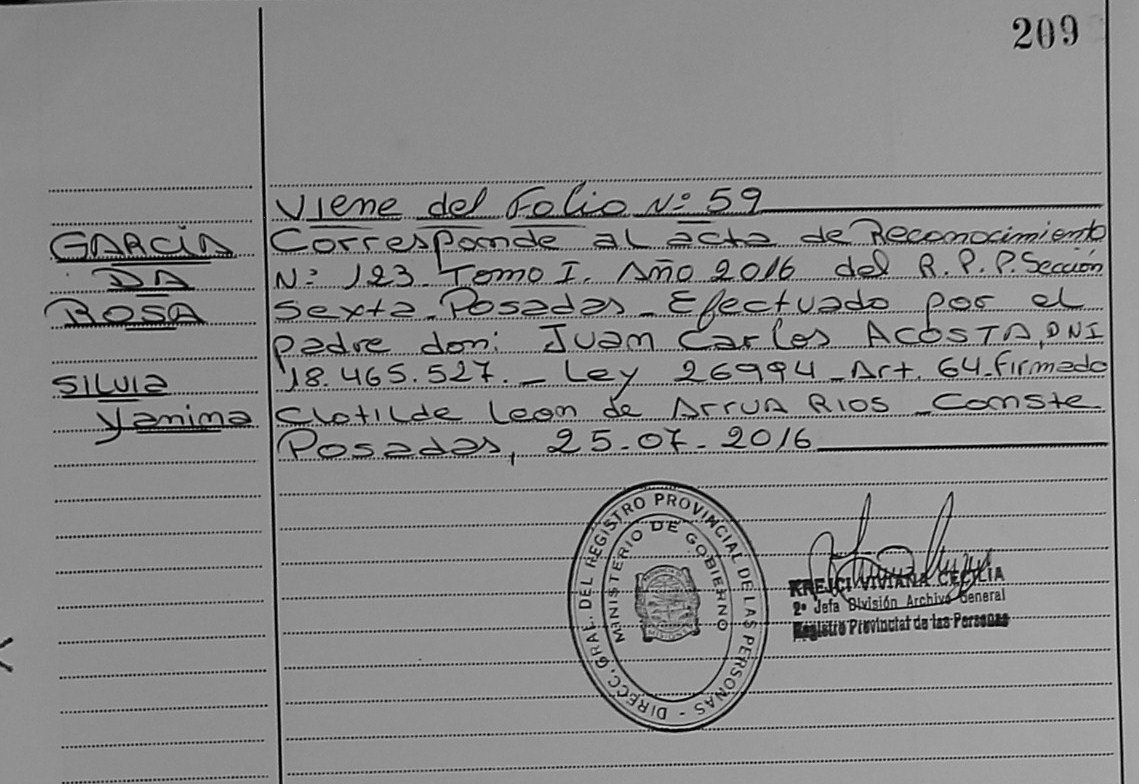 209
GARCÍA
DA
ROSA
SILVIA
Yanina
Viene del Folio N° 59
Corresponde al acta de Reconocimiento
N° 123 Tomo I. Año 2016 del R.P.P. Sección
Sexta - Posadas - Efectuado por el
padre don: Juan Carlos ACOSTA, DNI
18.465.527. - Ley 26994 - Art. 64 - firmado
Clotilde Leon de ARRUA RIOS - Conste
Posadas, 25-07-2016
DIRECC. GRAL. DEL REGISTRO PROVINCIAL DE LAS PERSONAS -
MINISTERIO DE GOBIERNO
KREICI VIVIANA CECILIA
2° Jefa División Archivo General
Registro Provincial de las Personas